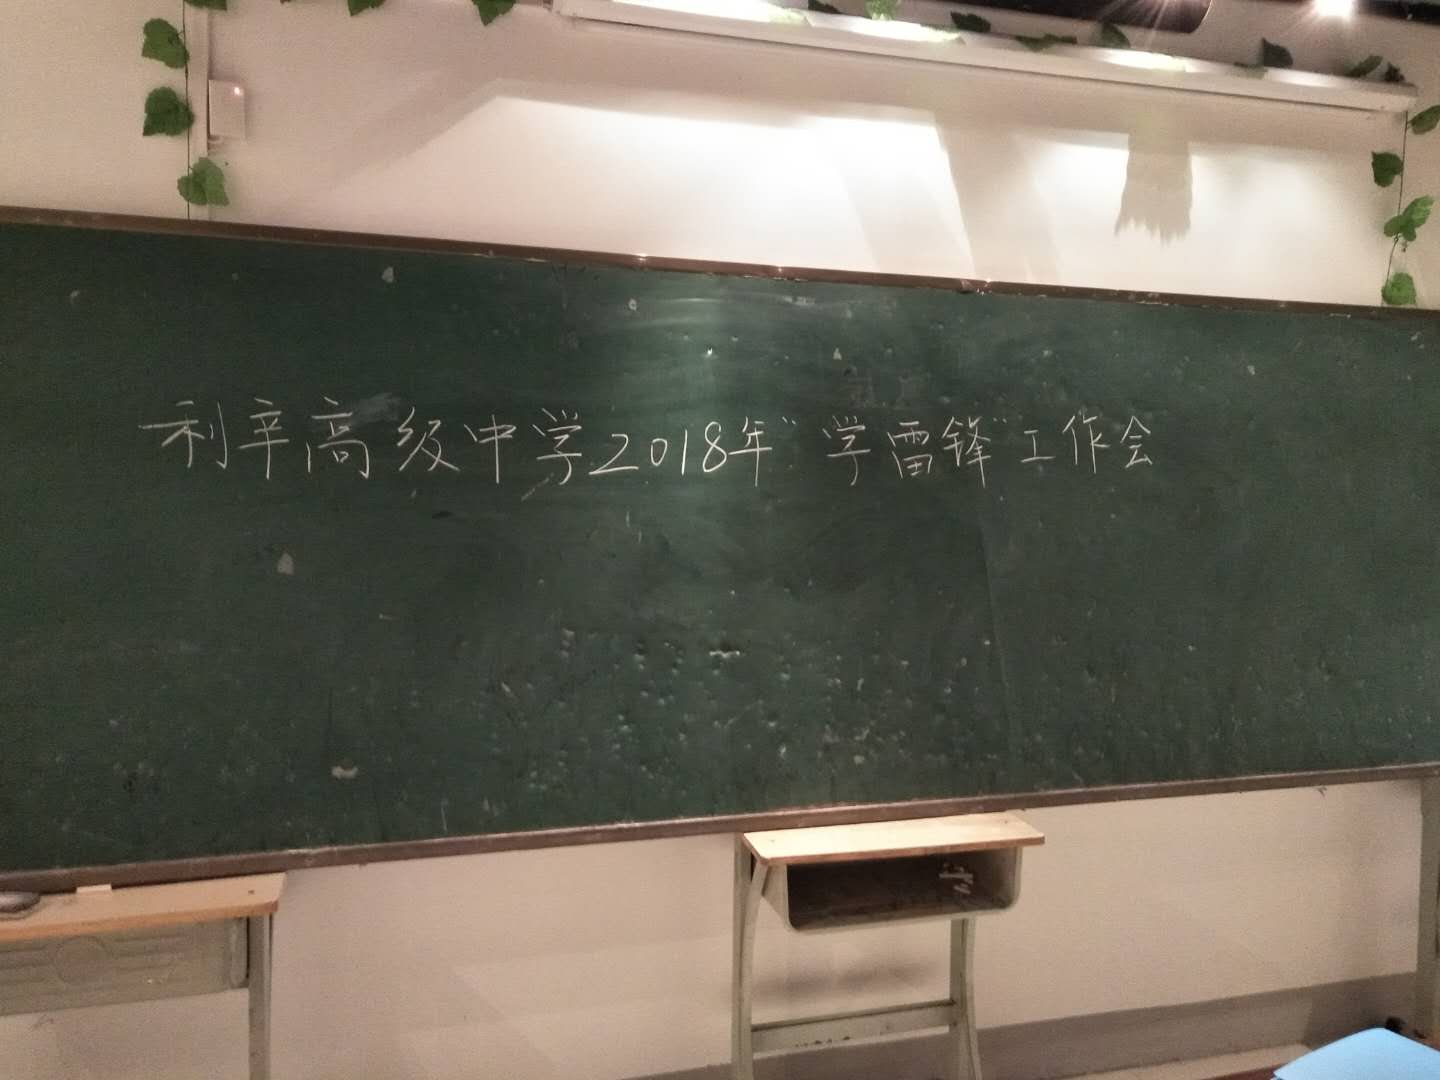 利辛高级中学2018年“学雷锋”工作会